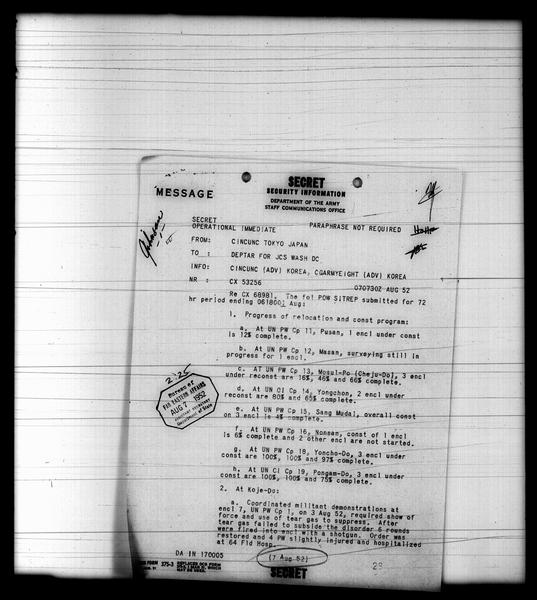 MESSAGE
SECRET
SECURITY INFORMATION
DEPARTMENT OF THE ARMY
STAFF COMMUNICATIONS OFFICE
SECRET
OPERATIONAL IMMEDIATE PARAPHRASE NOT REQUIRED
FROM: CINCUNC TOKYO JAPAN
TO : DEPTAR FOR JCS WASH DC
INFO: CINCUNC (ADV) KOREA, CGARMYEIGHT (ADV) KOREA
NR : CX 53256 070730Z AUG 52
Re CX 68981. The fol POW SITREP submitted for 72
hr period ending 061800I Aug:
1. Progress of relocation and const program:
a. At UN PW Cp 11, Pusan, 1 encl under const
is 12% complete.
b. At UN PW Cp 12, Masan, surveying still in
progress for 1 encl.
c. AT UN PW Cp 13, Mosul-Po (Cheju-Do), 3 encl
under reconst are 16%, 46% and 66% complete.
d. At UN CI Cp 14, Yongchon, 2 encl under
reconst are 80% and 65% complete.
e. At UN PW Cp 15, Sang Mudai, overall const
on 3 encl is 4% complete.
f. At UN PW Cp 16, Nonsan, const of 1 encl
is 6% complete and 2 other encl are not started.
g. At UN PW Cp 18, Yoncho-Do, 3 encl under
const are 100%, 100% and 97% complete.
h. At UN CI Cp 19, Pongam-Do, 3 encl under
const are 100%, 100% and 75% complete.
2. At Koje-Do:
a. Coordinated militant demonstrations at
encl 7, UN PW Cp 1, on 3 Aug 52, required show of
force and use of tear gas to suppress. After
tear gas failed to subside the disorder 6 rounds
were fired into encl with a shotgun. Order was
restored and 4 PW slightly injured and hospitalized
at 64 Fld Hosp.
2:25
Bureau of
FAR EASTERN AFFAIRS
AUG 7 1952
Department of State
DA IN 170005 (7 Aug 52)
FORM 375-3
REPLACES OCS FORM
SECRET